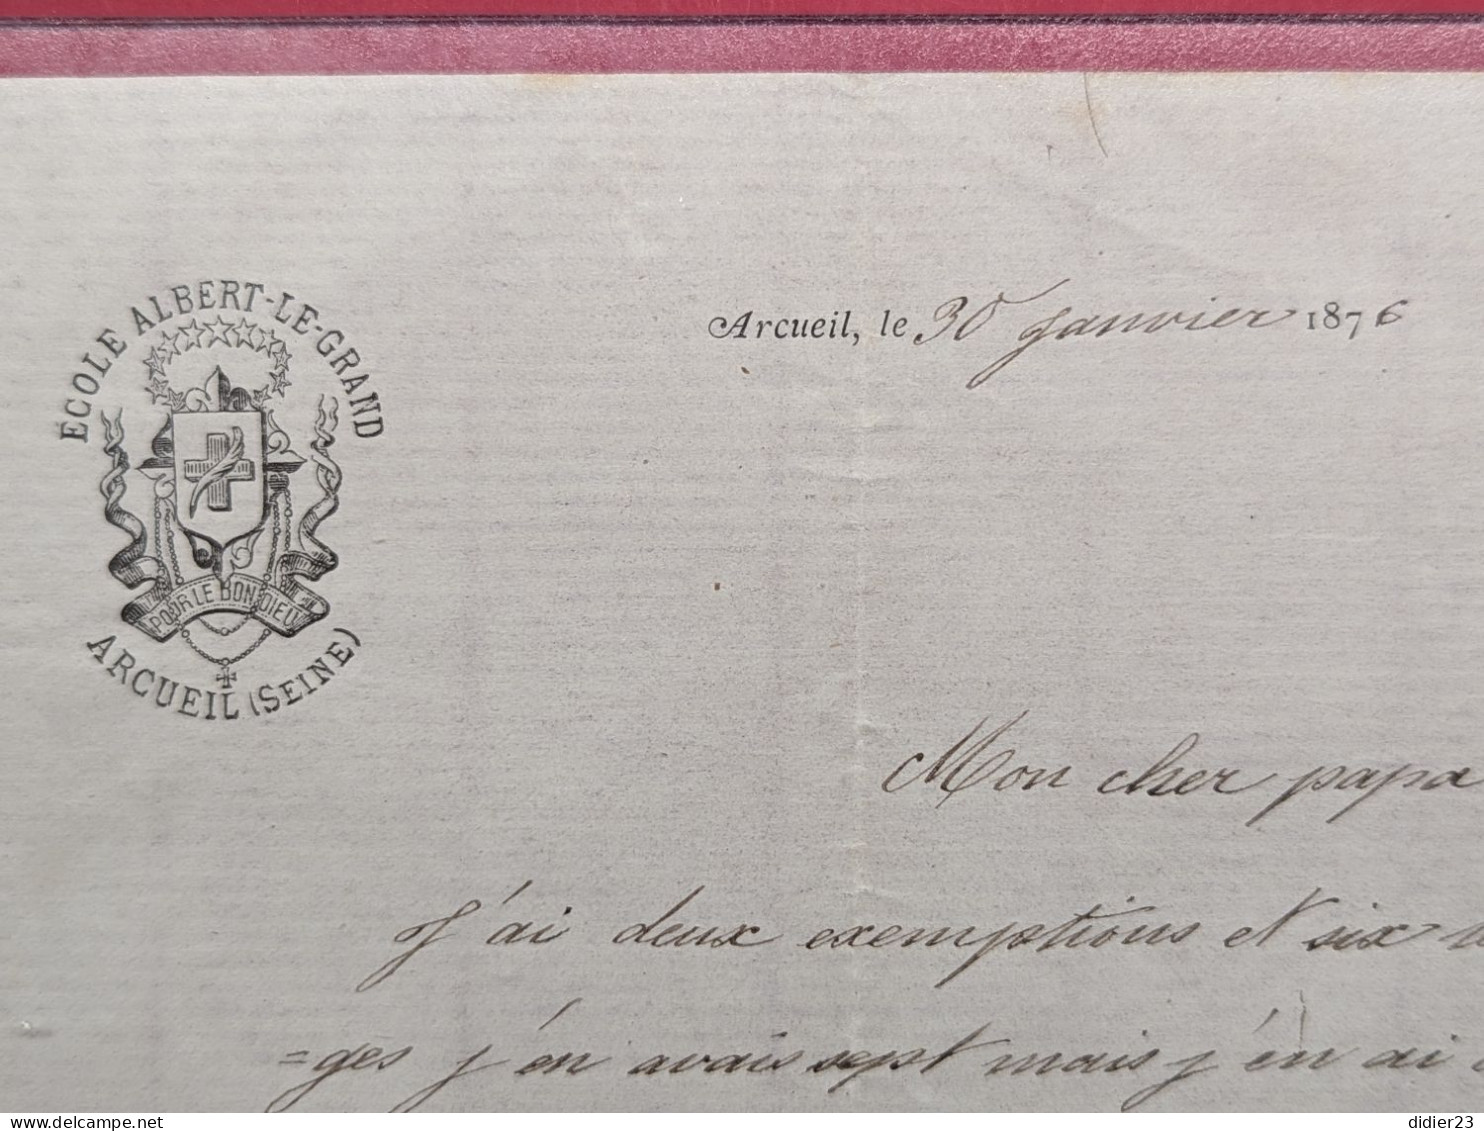 ECOLE ALBERT-LE-GRAND
POUR LE BON DIEU
ARCUEIL (SEINE)
Arcueil, le 30 janvier 1876
Mon cher papa
J'ai deux exemptions et six
=ges j'én avais sept mais j'én ai
delcampe.net
didier23